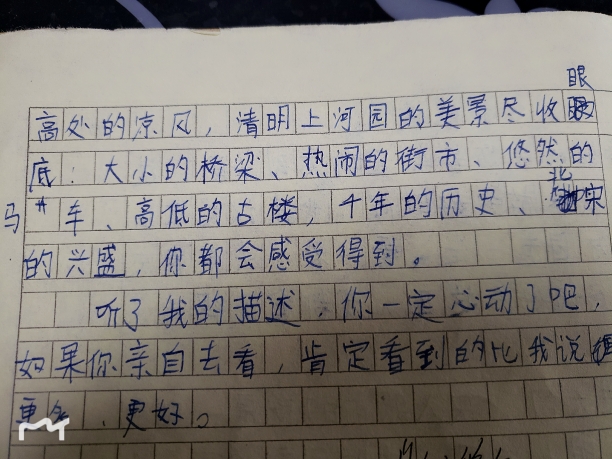 高处的凉风，清明上河园的美景尽收眼
底：大小的桥梁、热闹的街市、悠然的
马车、高低的古楼，千年的历史、北宋
的兴盛，你都会感受得到。
听了我的描述，你一定心动了吧，
如果你亲自去看，肯定看到的比我说得
更多，更好。